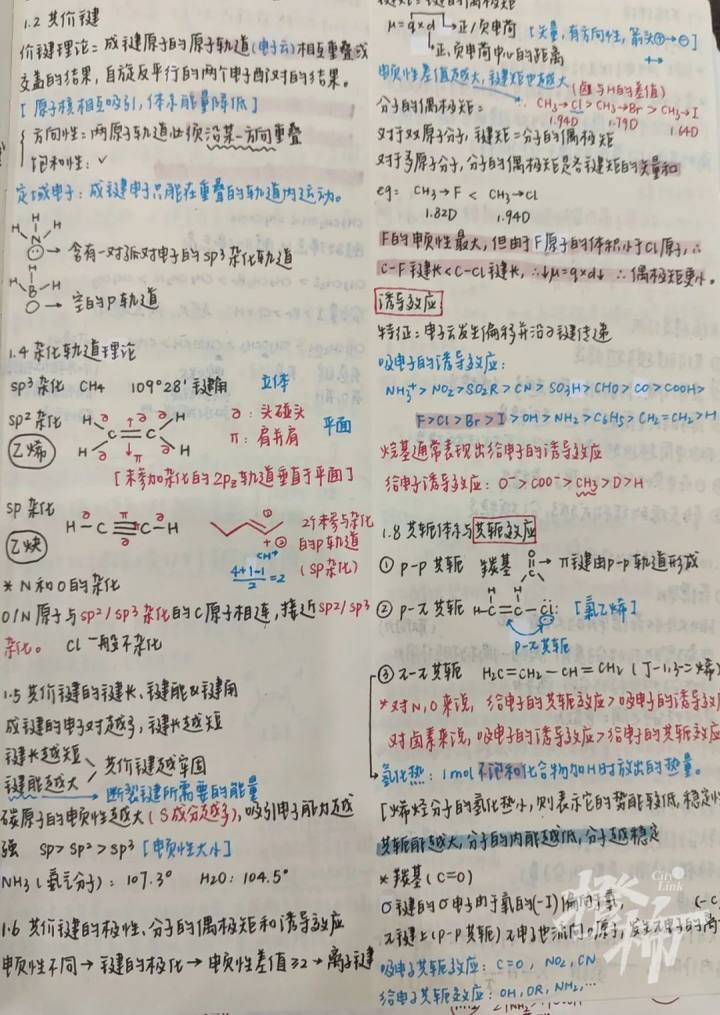 1.2 共价键
价键理论：成键原子的原子轨道(电子云)相互重叠或
交盖的结果，自旋反平行的两个电子配对的结果。
[原子核相互吸引，体系能量降低]
方向性：两原子轨道必须沿某一方向重叠
饱和性：✓
定域电子：成键电子只能在重叠的轨道内运动。
H
H N H
→ 含有一对孤对电子的sp³杂化轨道
H
H B H
→ 空的p轨道
1.4 杂化轨道理论
sp³杂化 CH4 109°28' 键角 立体
sp²杂化
乙烯
H H
C=C
H H
σ：头碰头
π：肩并肩
平面
[未参加杂化的2pz轨道垂直于平面]
sp杂化
乙炔
H-C≡C-H
2个未参与杂化
的p轨道
(sp杂化)
4+1-1/2=2
* N和O的杂化
O/N原子与sp²/sp³杂化的C原子相连，接近sp²/sp³
杂化。 Cl一般不杂化
1.5 共价键的键长、键能&键角
成键的电子对越多，键长越短
键长越短
键能越大
共价键越牢固
断裂键所需要的能量
碳原子的电负性越大(S成分越多)，吸引电子能力越
强 sp>sp²>sp³[电负性大小]
NH3(氨分子)：107.3° H2O：104.5°
1.6 共价键的极性、分子的偶极矩和诱导效应
电负性不同→键的极化→电负性差值≥2→离子键
μ=q×d →正/负电荷 [矢量，有方向性，箭头⊕→⊖]
→正、负电荷中心的距离
电负性差值越大，键矩也越大
(卤与H的差值)
分子的偶极矩：
CH3→Cl>CH3→Br>CH3→I
1.94D 1.79D 1.64D
对于双原子分子，键矩=分子的偶极矩
对于多原子分子，分子的偶极矩是各键矩的矢量和
eg: CH3→F < CH3→Cl
1.82D 1.94D
F的电负性最大，但由于F原子的体积小于Cl原子，∴
C-F键长<C-Cl键长，∴↓μ=q×d↓ ∴偶极矩更小。
诱导效应
特征：电子云发生偏移并沿σ键传递
吸电子的诱导效应：
NH3⁺>NO2>SO2R>CN>SO3H>CHO>CO>COOH>
F>Cl>Br>I>OH>NH2>C6H5>CH2=CH2>H
烷基通常表现出给电子的诱导效应
给电子诱导效应：O⁻>COO⁻>CH3>D>H
1.8 共轭体系与共轭效应
① p-p共轭 羰基 → π键由p-p轨道形成
② p-π共轭 [氯乙烯]
p-π共轭
③ π-π共轭 H2C=CH2-CH=CH2 (丁-1,3-二烯)
*对N,O来说，给电子的共轭效应>吸电子的诱导效应
对卤素来说，吸电子的诱导效应>给电子的共轭效应
氢化热：1mol不饱和化合物加H时放出的热量。
[烯烃分子的氢化热小，则表示它的势能较低，稳定性
共轭能越大，分子的内能越低，分子越稳定
*羰基(C=O)
σ键的σ电子由于氧的(-I)偏向于氧，
π键上(p-p共轭)π电子也流向O原子，发生π电子的离
吸电子共轭效应：C=O, NO2, CN
给电子共轭效应：OH, OR, NH2, …
City Link